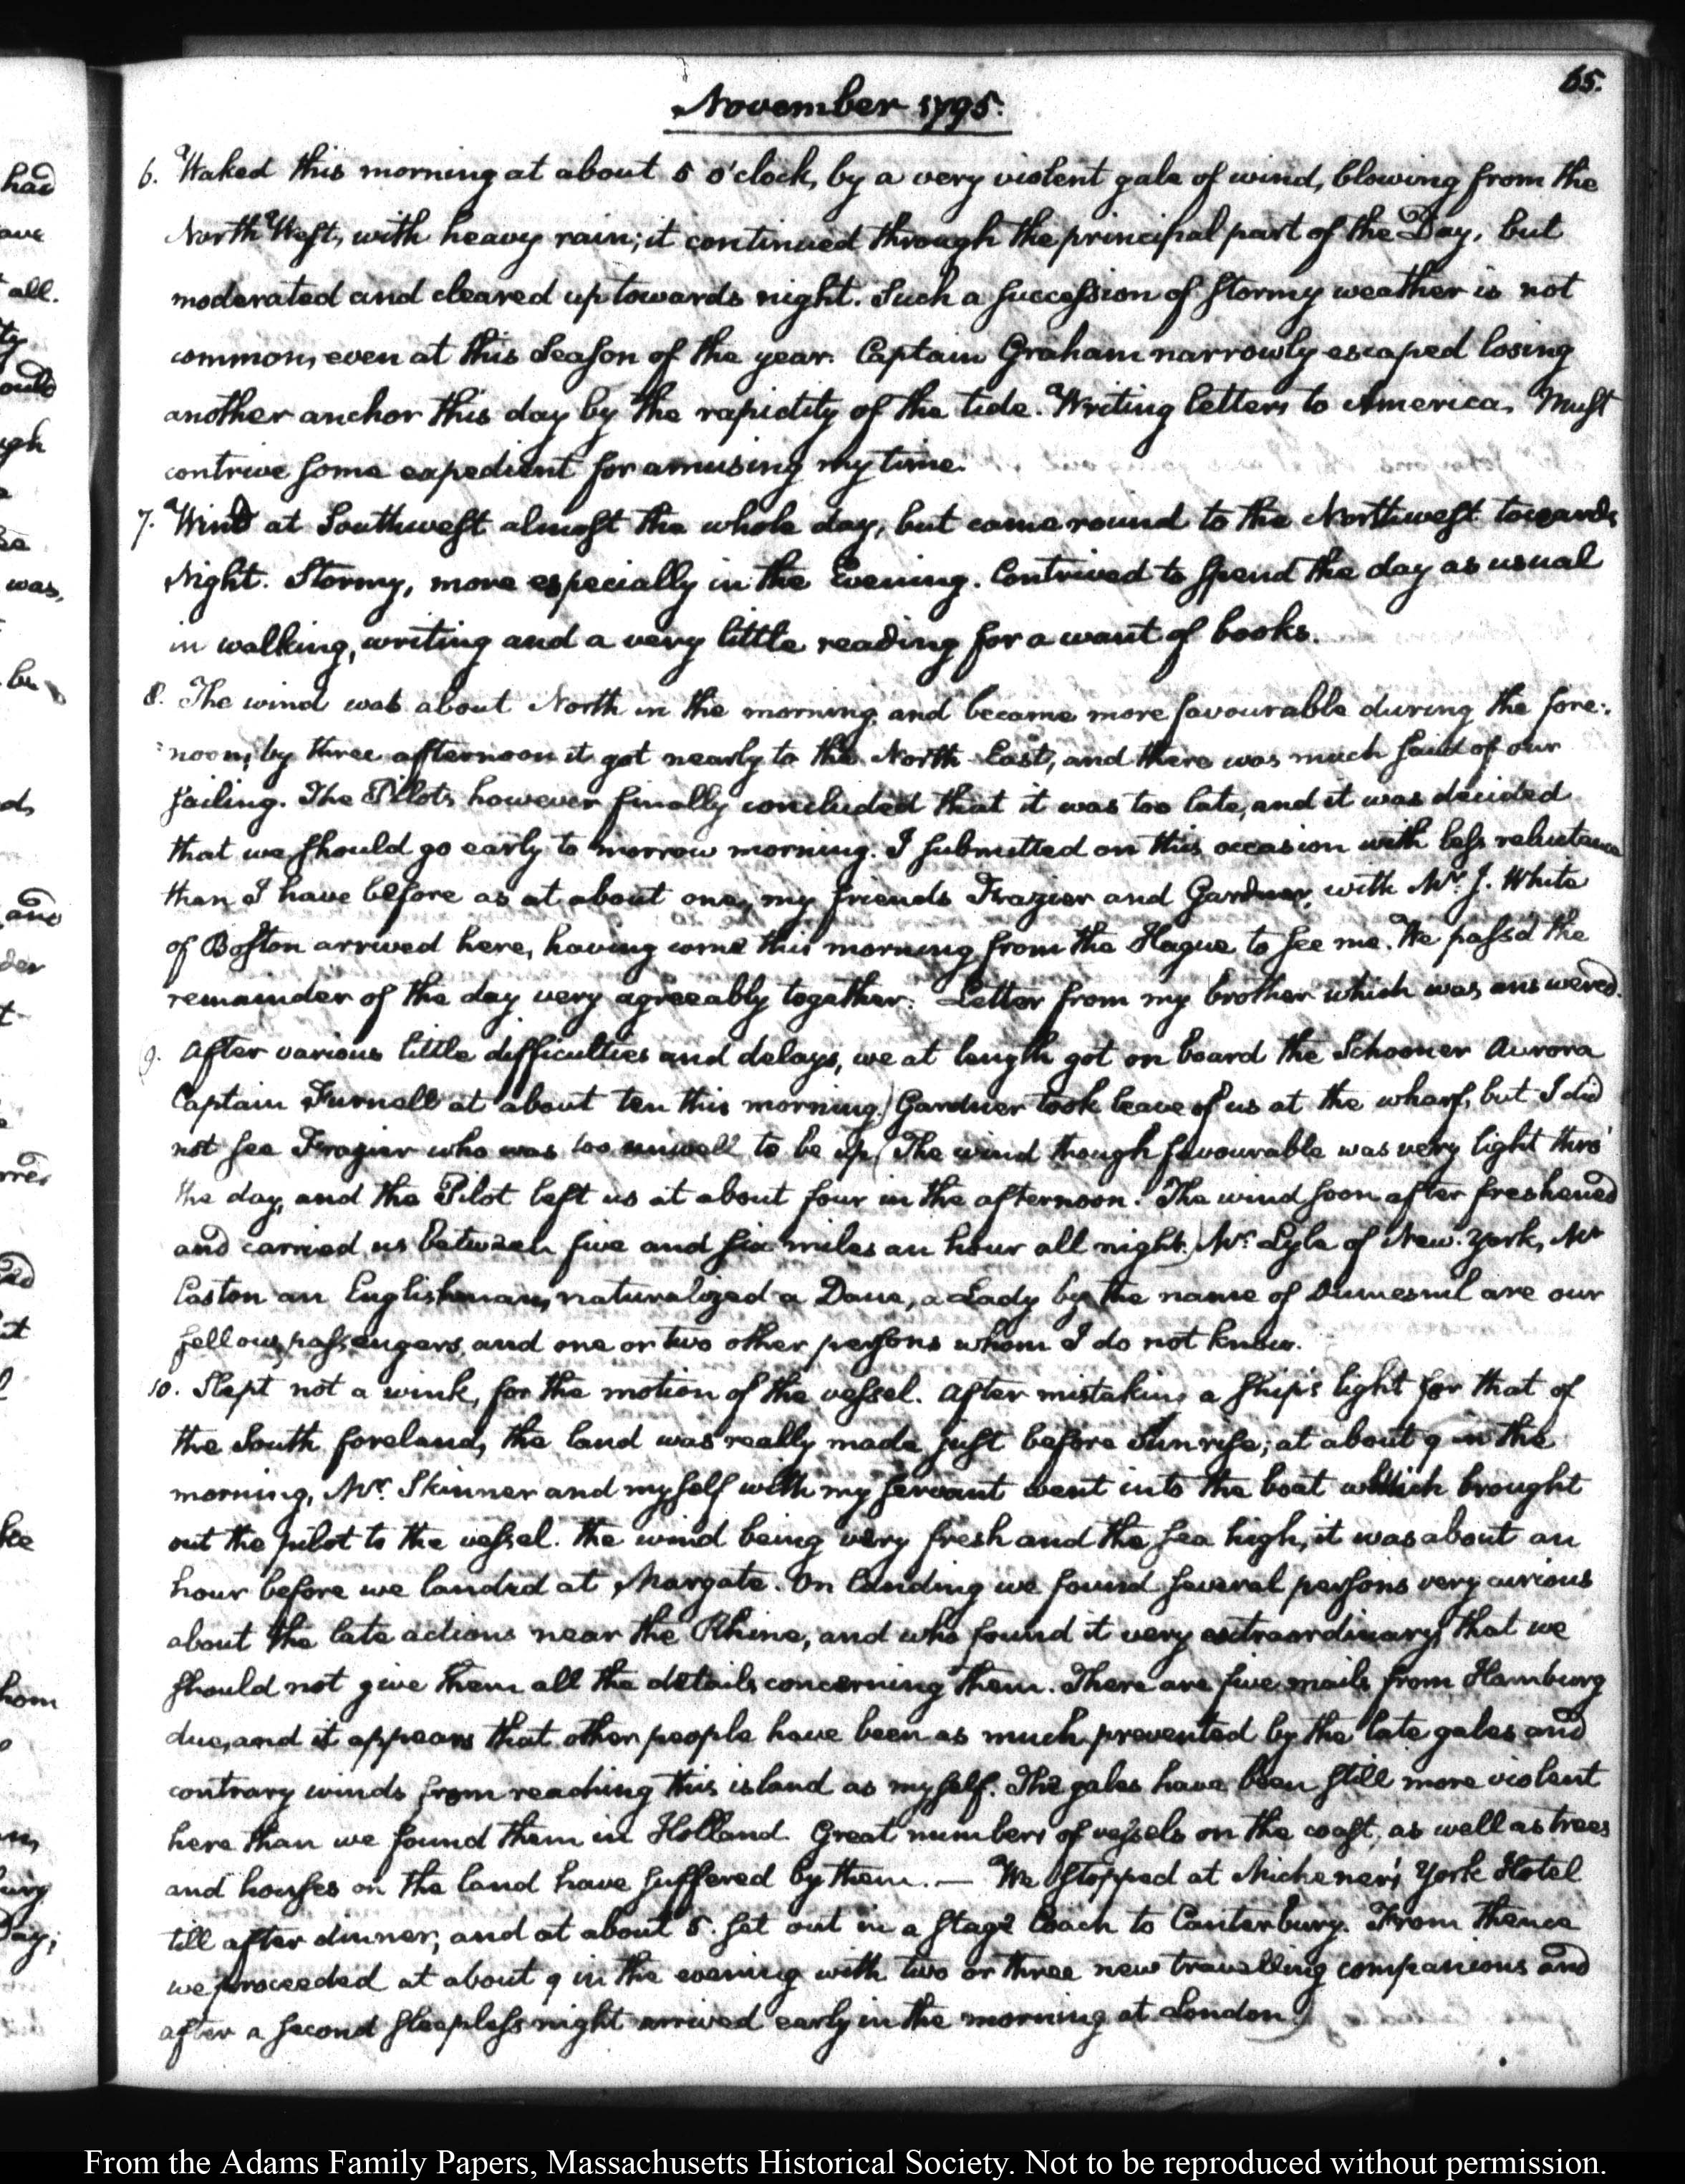 65.
November 1795.
6. Waked this morning at about 5 o'clock, by a very violent gale of wind, blowing from the
North West, with heavy rain; it continued through the principal part of the Day, but
moderated and cleared up towards night. Such a succession of stormy weather is not
common, even at this Season of the year. Captain Graham narrowly escaped losing
another anchor this day by the rapidity of the tide. Writing letters to America. Must
contrive some expedient for amusing my time.
7. Wind at Southwest almost the whole day, but came round to the Northwest towards
Night. Stormy, more especially in the Evening. Contrived to spend the day as usual
in walking, writing and a very little reading for a want of books.
8. The wind was about North in the morning and became more favourable during the fore:
:noon; by three afternoon it got nearly to the North East, and there was much said of our
sailing. The Pilots however finally concluded that it was too late, and it was decided
that we should go early to morrow morning. I submitted on this occasion with less reluctance
than I have before as at about one, my friends Frazier and Gardner, with Mr. J. White
of Boston arrived here, having come this morning from the Hague to see me. We pass'd the
remainder of the day very agreeably together. Letter from my brother which was answered.
9. After various little difficulties and delays, we at length got on board the Schooner Aurora
Captain Furnell at about ten this morning.) Gardner took leave of us at the wharf, but I did
not see Frazier who was too unwell to be up( The wind though favourable was very light thro'
the day, and the Pilot left us at about four in the afternoon. The wind soon after freshened
and carried us between five and six miles an hour all night.) Mr. Lyle of New York, Mr
Caston an Englishman, naturalized a Dane, a Lady by the name of Dumesnil are our
fellow passengers, and one or two other persons whom I do not know.
10. Slept not a wink, for the motion of the vessel. After mistaking a ship's light for that of
the South foreland, the land was really made just before Sunrise; at about 9 in the
morning, Mr. Skinner and myself with my servant went into the boat which brought
out the pilot to the vessel. The wind being very fresh and the sea high, it was about an
hour before we landed at Margate. On landing we found several persons very curious
about the late actions near the Rhine, and who found it very extraordinary, that we
should not give them all the details concerning them. There are five mails from Hamburg
due, and it appears that other people have been as much prevented by the late gales and
contrary winds from reaching this island as myself. The gales have been still more violent
here than we found them in Holland. Great numbers of vessels on the coast, as well as trees
and houses on the land have suffered by them. — We stopped at Michener's York Hotel
till after dinner, and at about 5. set out in a stage Coach to Canterbury. From thence
we proceeded at about 9 in the evening with two or three new travelling companions and
after a second sleepless night arrived early in the morning at London)
From the Adams Family Papers, Massachusetts Historical Society. Not to be reproduced without permission.